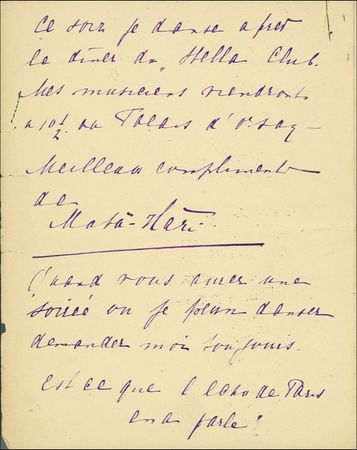 Ce soir je danse apres
le diner du Stella Club.
Mes musiciens viendront
a 10½ au Palais d'Orsay -
Meilleau compliments
de
Mata-Hari
Quand vous avrer une
soirée ou je peux danser
demander moi toujours.
Est ce que l'echo de Paris
en a parle?